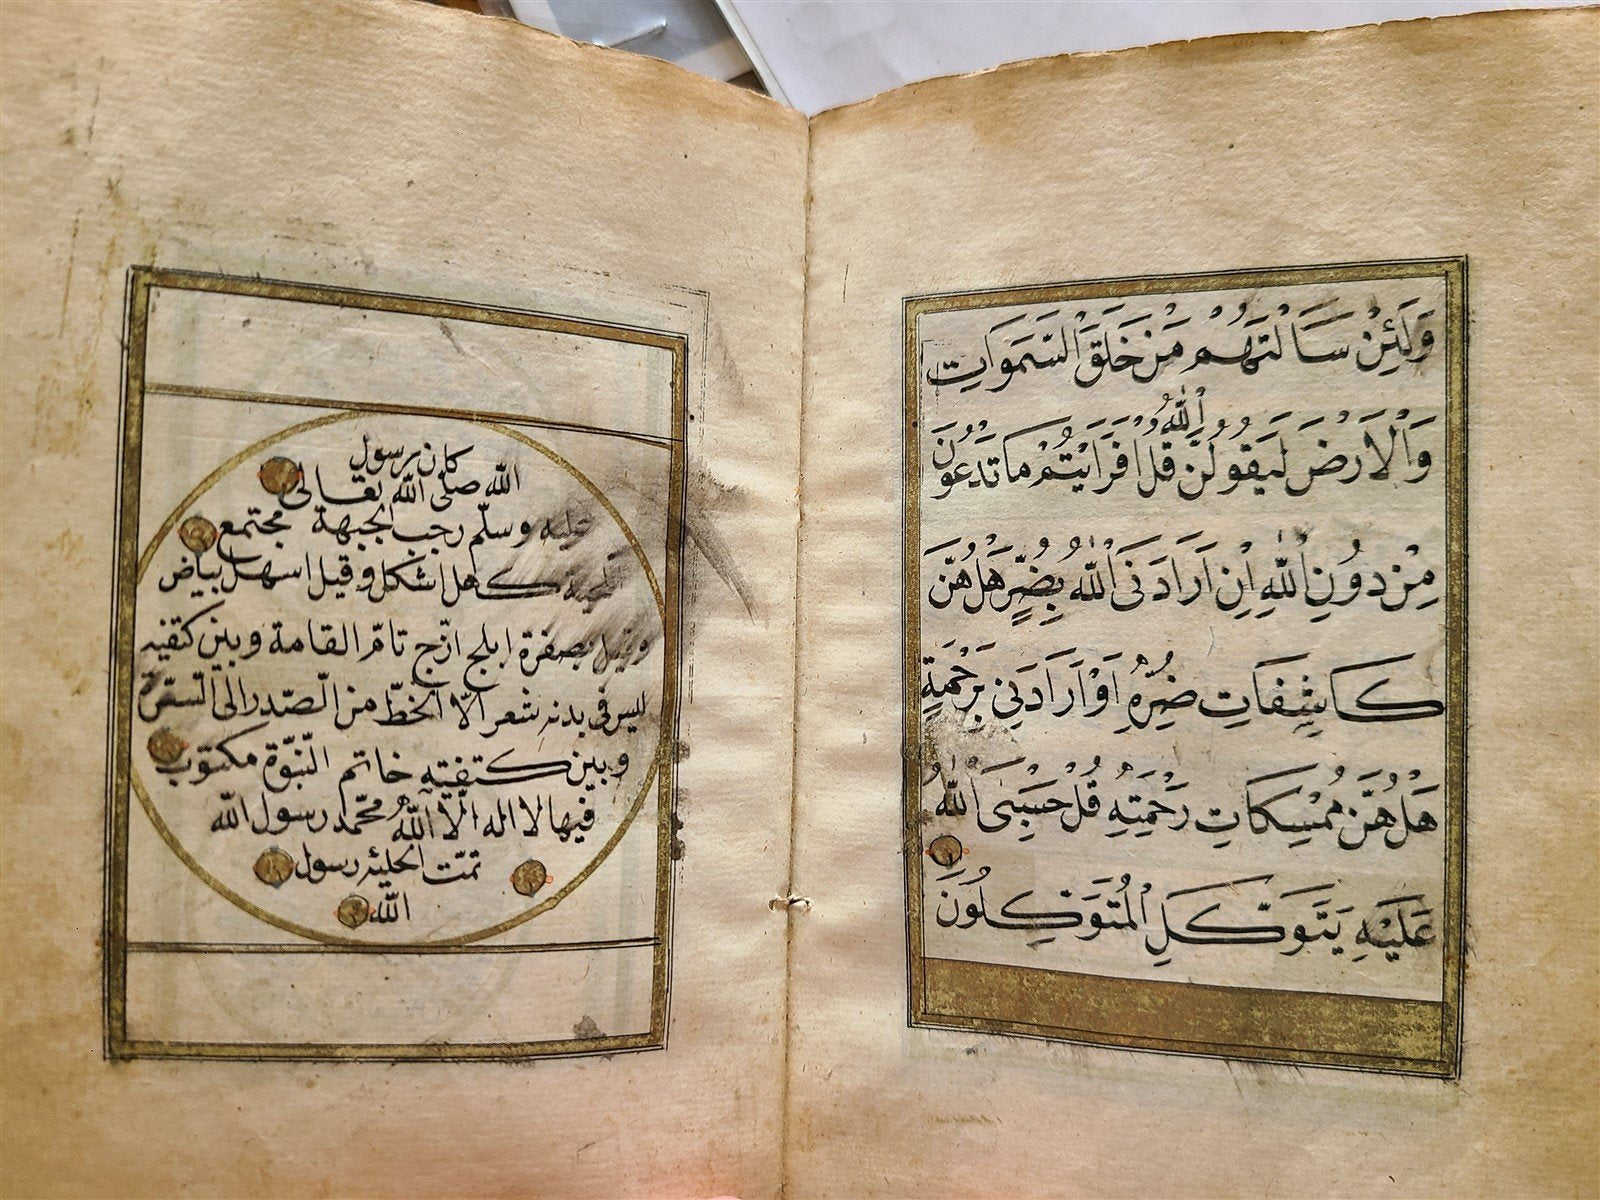 وَلَئِنْ سَاَلْتَهُمْ مَنْ خَلَقَ السَّمَوَاتِ
وَالْاَرْضَ لَيَقُولُنَّ اللّٰهُ قُلْ اَفَرَاَيْتُمْ مَا تَدْعُونَ
مِنْ دُونِ اللّٰهِ اِنْ اَرَادَنِىَ اللّٰهُ بِضُرٍّ هَلْ هُنَّ
كَاشِفَاتُ ضُرِّهِ اَوْ اَرَادَنِى بِرَحْمَةٍ
هَلْ هُنَّ مُمْسِكَاتُ رَحْمَتِهِ قُلْ حَسْبِىَ اللّٰهُ
عَلَيْهِ يَتَوَكَّلُ الْمُتَوَكِّلُونَ
كان رسول
الله صلى الله تعالى
عليه وسلّم رحب الجبهة مجتمع
كاهل اشكل وقيل اسهل بياض
وقيل بصفرة ابلج ازّج تامّ القامة وبين كتفيه
ليس فى بدنه شعر الّا الخطّ من الصّدر الى السّرّة
وبين كتفيه خاتم النّبوّة مكتوب
فيها لا اله الّا اللّه محمّد رسول الله
تمّت الحلية رسول
الله